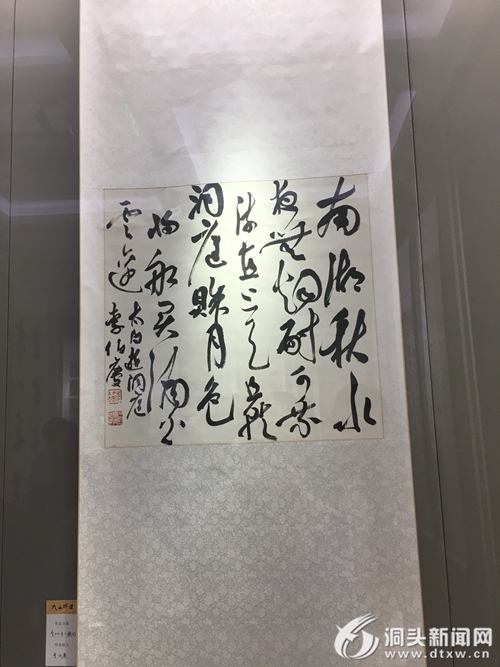 南湖秋水
夜無烟耐可乘
流直上天且就
洞庭賒月色
将船買酒白
雲邊
太白遊洞庭
李伯慶
洞头新闻网
www.dtxw.cn